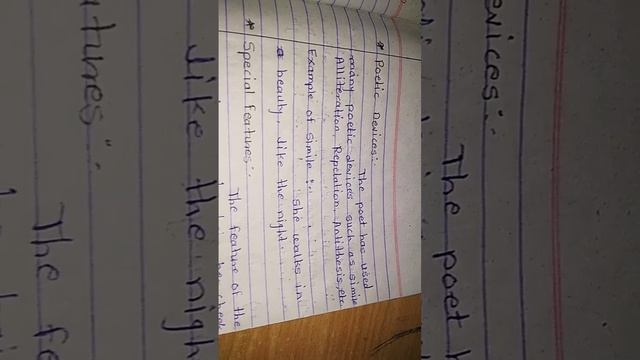 * Poetic Devices:-
The poet has used
many poetic devices such as simile
Alliteration, Repetation, Antithesis, etc.
Example of simile :-
she walks in
a beauty, like the night.
* Special features:-
The feature of the